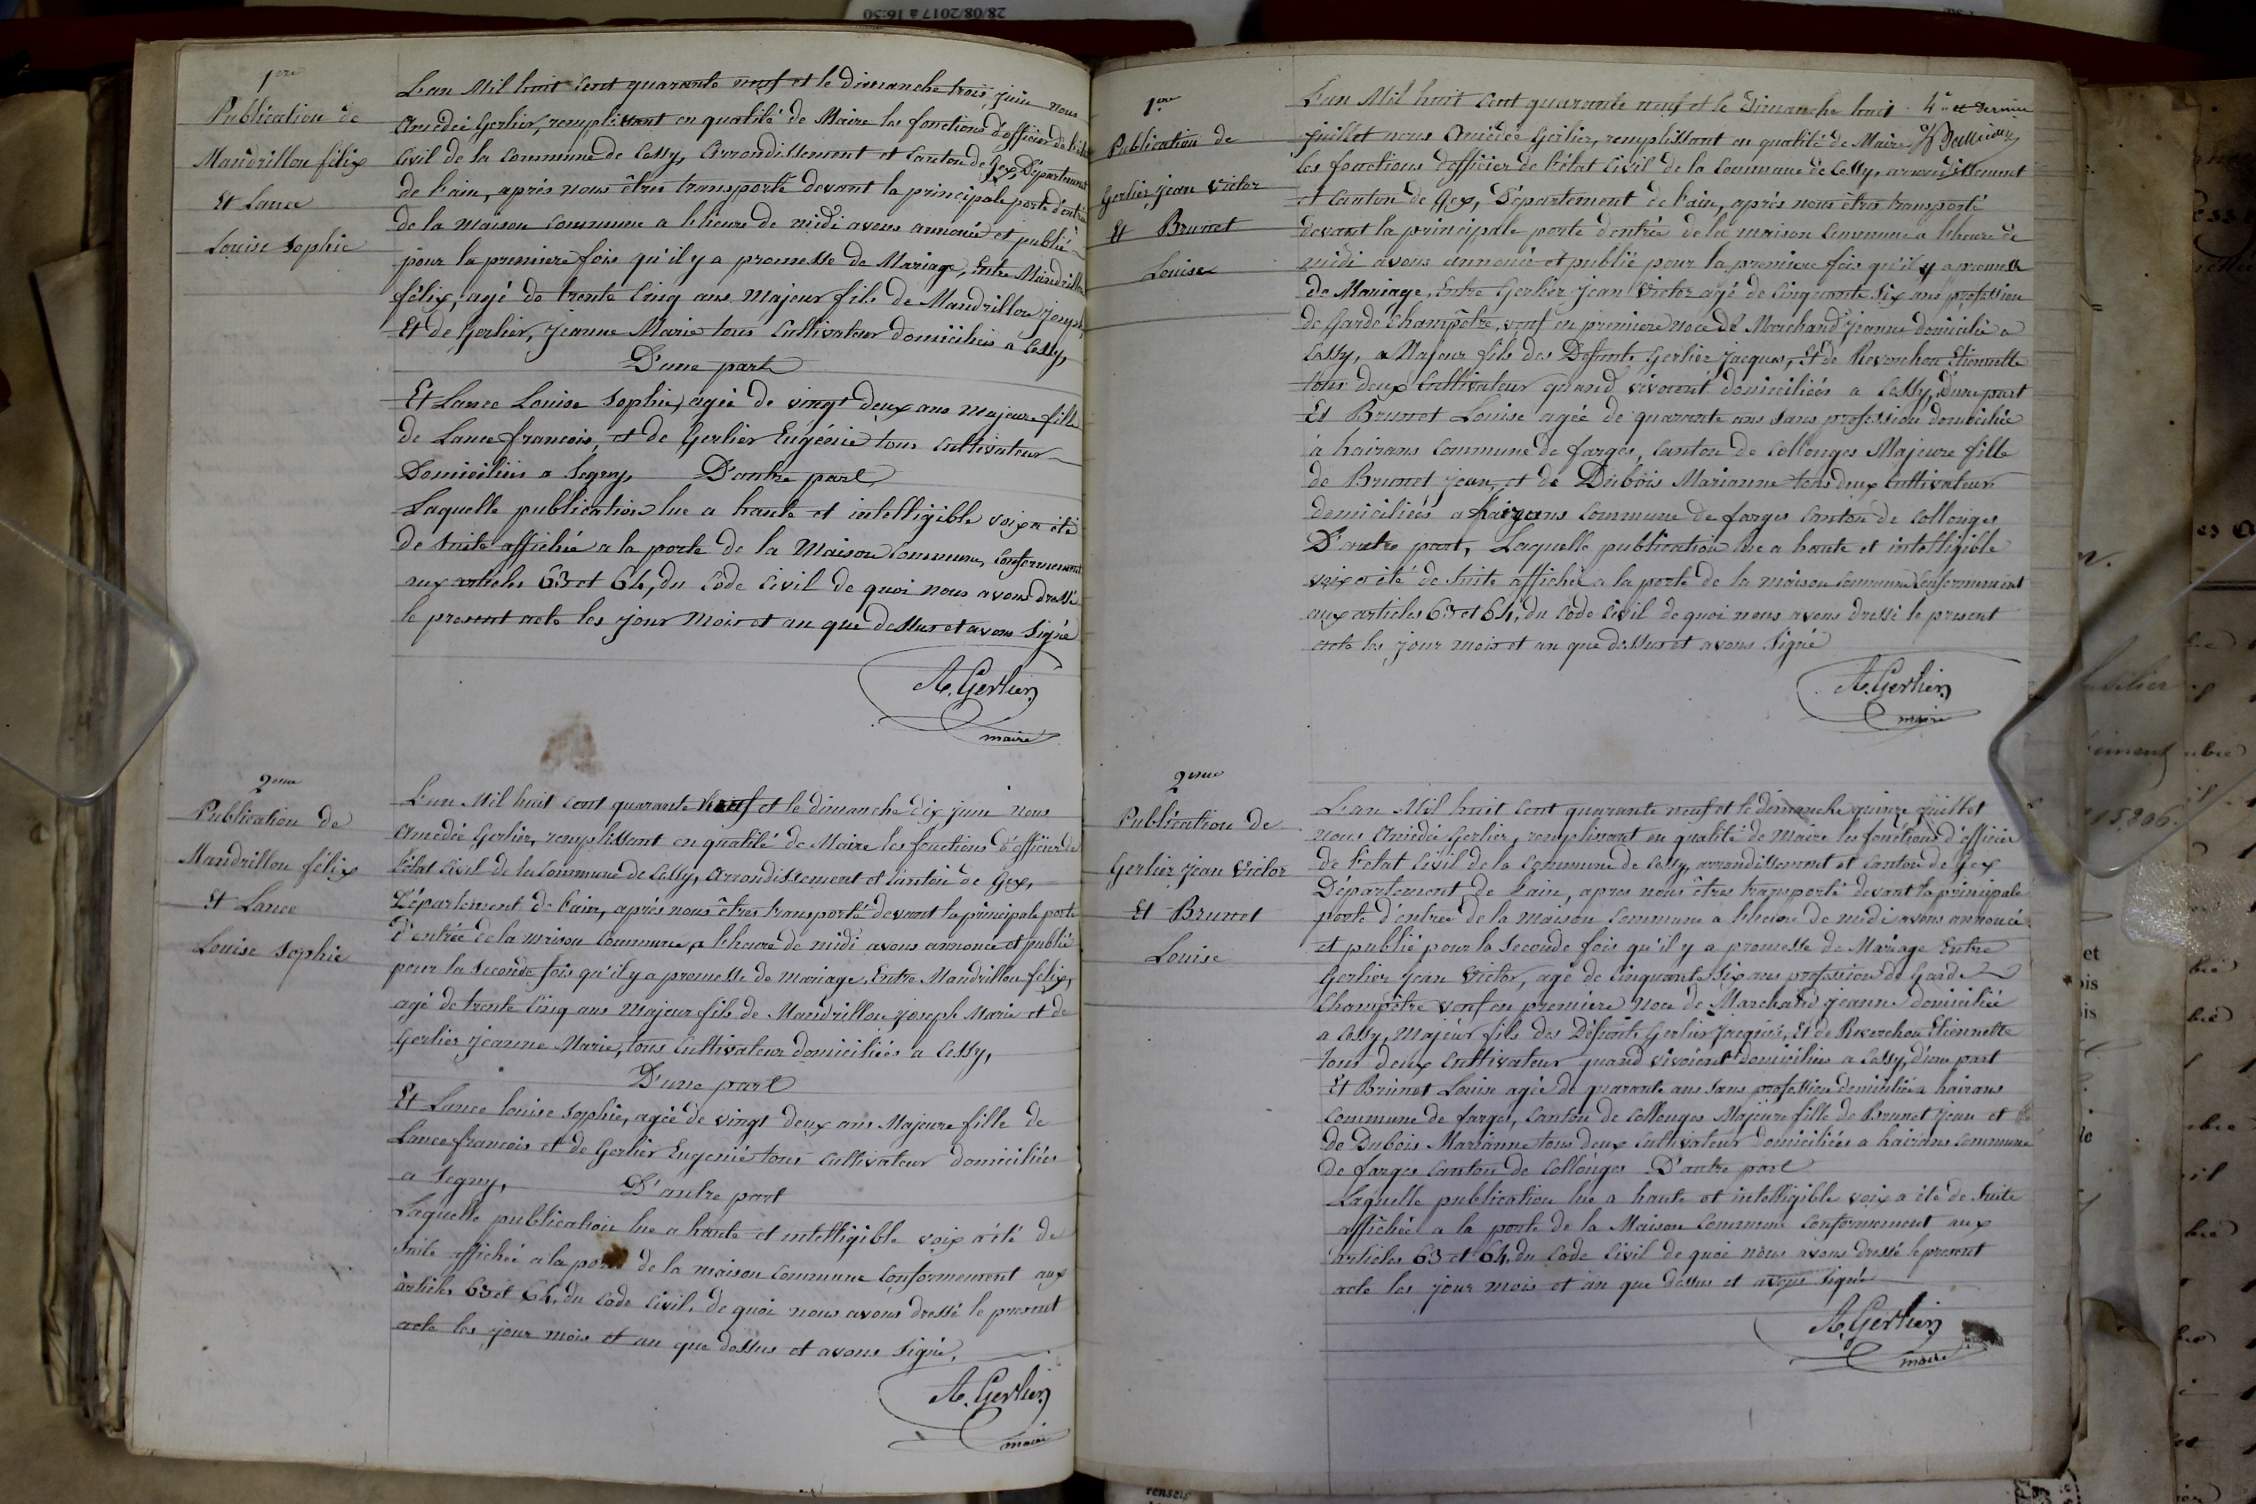 28/08/2017 à 16:50
1ere
Publication de
Mandrillon félix
Et Lance
Louise Sophie
L'an Mil huit Cent quarante neuf et le dimanche trois juin nous
Amedée Gerlier, remplissant en qualité de Maire les fonctions d'officier de l'état
Civil de la Commune de Cessy, Arrondissement et Canton de Gex Département
de l'ain, après nous être transporté devant la principale porte d'entrée
de la Maison Commune a l'heure de midi avons annoncé et publié
pour la premiere fois qu'il y a promesse de Mariage, Entre Mandrillon
félix, agé de trente Cinq ans Majeur fils de Mandrillon joseph
Et de Gerlier, Jeanne Marie tous Cultivateur domiciliés a Cessy,
D'une part
Et Lance Louise Sophie, agée de vingt deux ans Majeure fille
de Lance francois, et de Gerlier Eugénie tous Cultivateur
Domiciliés a Segny, D'autre part,
Laquelle publication lue a haute et intelligible voix a été
de Suite affichée a la porte de la Maison Commune, Conformement
aux articles 63 et 64, du Code Civil de quoi nous avons dressé
le present acte les jour Mois et an que dessus et avons Signé
A. Gerlier
maire
2eme
Publication de
Mandrillon félix
Et Lance
Louise Sophie
L'an Mil huit Cent quarante neuf et le dimanche dix juin nous
Amedée Gerlier, remplissant en qualité de Maire les fonctions d'officier de
l'état Civil de la Commune de Cessy, Arrondissement et Canton de Gex,
Département de l'ain, après nous être transporté devant la principale porte
d'entrée de la maison Commune a l'heure de midi avons annoncé et publié
pour la Seconde fois qu'il y a promesse de mariage. Entre Mandrillon félix,
agé de trente Cinq ans Majeur fils de Mandrillon joseph Marie et de
Gerlier Jeanne Marie, tous Cultivateur domiciliés a Cessy,
D'une part
Et Lance louise Sophie, agée de vingt deux ans Majeure fille de
Lance francois et de Gerlier Eugenie tous Cultivateur domiciliés
a Segny, D'autre part
Laquelle publication lue a haute et intelligible voix a été de
Suite affichée a la porte de la maison commune Conformement aux
articles 63 et 64, du Code Civil. de quoi nous avons dressé le present
acte les jour mois et an que dessus et avons Signé.
A. Gerlier
maire
1ere
Publication de
Gerlier jean Victor
Et Brunet
Louise
L'an Mil huit Cent quarante neuf et le Dimanche huit 4e et dernier
juillet nous Amédée Gerlier, remplissant en qualité de Maire
les fonctions d'officier de l'état Civil de la Commune de Cessy, arrondissement
et Canton de Gex, Département de l'ain, après nous être transporté
devant la principale porte d'entrée de la maison Commune a l'heure de
midi avons annoncé et publié pour la premiere fois qu'il y a promesse
de Mariage, Entre Gerlier Jean Victor agé de Cinquante Six ans profession
de Garde Champêtre, veuf en premiere noce de Marchand Jeanne domicilié a
Cessy, a Majeur fils des Defunts Gerlier Jacques, Et de Reverchon Etiennette
tous deux Cultivateur quand vivoient domiciliés a Cessy, d'une part
Et Brunet Louise agée de quarante ans sans profession domiciliée
à hairans Commune de farges, Canton de Collonges Majeure fille
de Brunet jean, et de Dubois Marianne tous deux Cultivateurs
domiciliés a hairans Commune de farges Canton de Collonges
D'autre part, Laquelle publication lue a haute et intelligible
voix a été de Suite affichée a la porte de la maison Commune Conformement
aux articles 63 et 64, du Code Civil de quoi nous avons dressé le present
acte les jour mois et an que dessus et avons Signé
A. Gerlier
maire
2eme
Publication de
Gerlier jean Victor
Et Brunet
Louise
L'an Mil huit Cent quarante neuf et le dimanche quinze juillet
nous Amédée Gerlier, remplissant en qualité de Maire les fonctions d'officier
de l'état Civil de la Commune de Cessy, arrondissement et Canton de Gex
Département de l'ain, apres nous être transporté devant la principale
porte d'entrée de la Maison Commune a l'heure de midi avons annoncé
et publié pour la Seconde fois qu'il y a promesse de Mariage Entre
Gerlier Jean Victor, agé de Cinquante Six ans profession de Garde
Champêtre veuf en premiere noce de Marchand jeanne domicilié
a Cessy, Majeur fils des Défunts Gerlier Jacques, Et de Reverchon Etiennette
tous deux Cultivateur quand vivoient domiciliés a Cessy, d'une part
Et Brunet Louise agée de quarante ans sans profession domiciliée a hairans
Commune de farges, Canton de Collonges Majeure fille de Brunet Jean et
de Dubois Marianne tous deux Cultivateur domiciliés a hairans Commune
de farges Canton de Collonges D'autre part
Laquelle publication lue a haute et intelligible voix a été de Suite
affichée a la porte de la Maison Commune Conformement aux
articles 63 et 64, du Code Civil de quoi nous avons dressé le present
acte les jour mois et an que dessus et avons Signé
A. Gerlier
maire